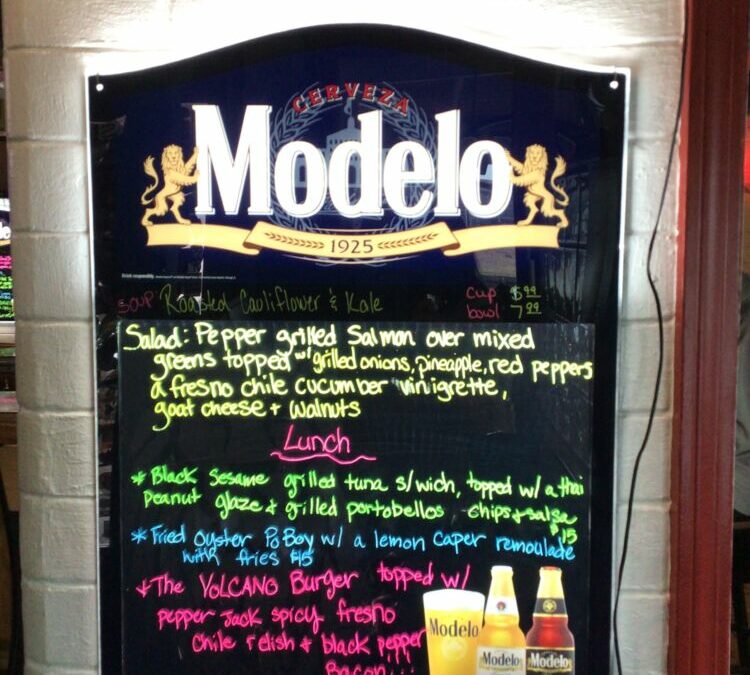 CERVEZA
Modelo
1925
Soup Roasted Cauliflower & Kale cup $5.99
bowl 7.99
Salad: Pepper grilled Salmon over mixed
greens topped w/ grilled onions, pineapple, red peppers
a fresno chile cucumber vinigrette,
goat cheese + walnuts
Lunch
* Black Sesame grilled tuna s/wich, topped w/ a thai
Peanut glaze & grilled portobellos chips & salsa
$15
* Fried Oyster Po Boy w/ a lemon caper remoulade
with fries $15
* The VOLCANO Burger topped w/
pepper Jack spicy fresno
chile relish & black pepper
Bacon...
Modelo
Modelo
Modelo